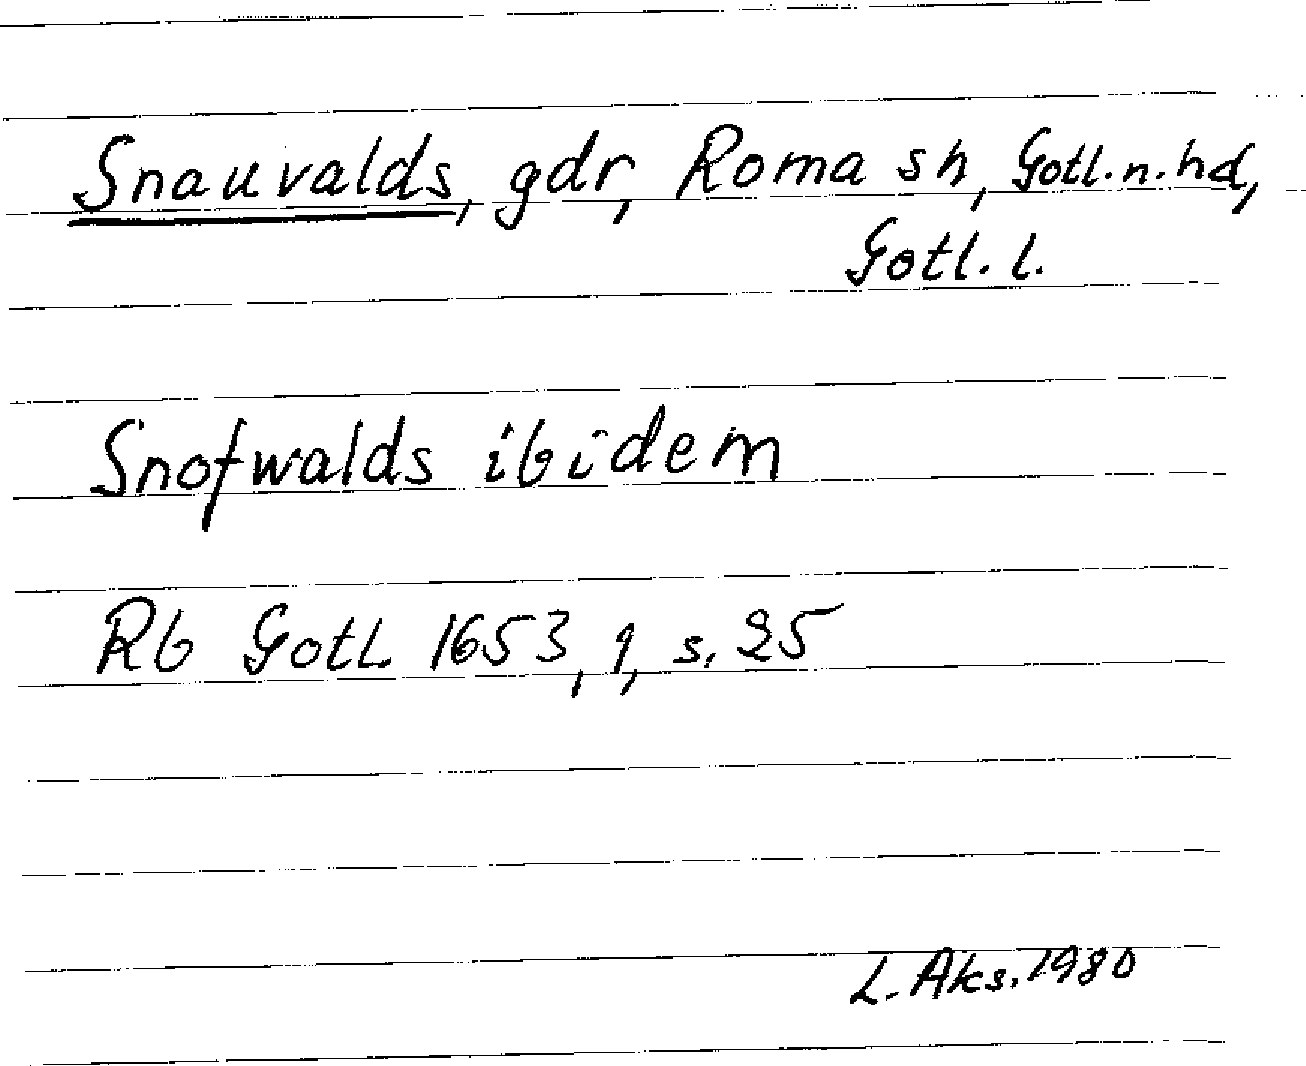 Snauvalds, gdr, Roma sn, Gotl. n. hd,
Gotl. l.
Snofwalds ibidem
Rb Gotl. 1653, 1, s. 25
L. Aks. 1980